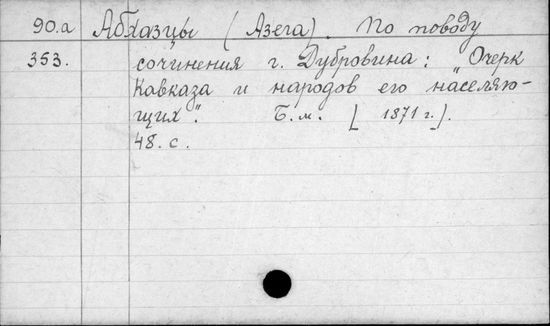 90.а Абхазцы (Азега). По поводу
353. сочинения г. Дубровина: "Очерк
Кавказа и народов его населяю-
щих". Б.м. [1871 г.].
48. с.